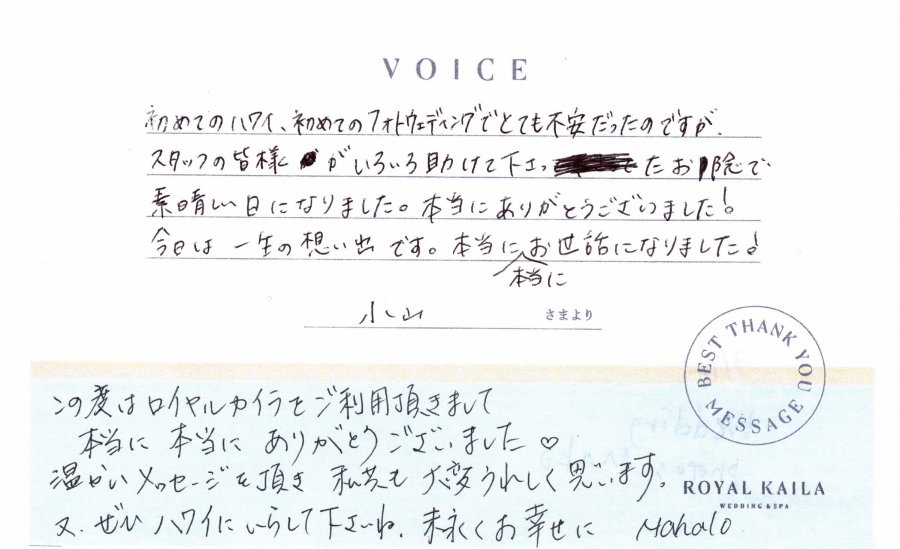 VOICE
初めてのハワイ、初めてのフォトウェディングでとても不安だったのですが、
スタッフの皆様がいろいろ助けて下さったお陰で
素晴しい日になりました。本当にありがとうございました!
今日は一生の想い出です。本当にお世話になりました!
本当に
小山 さまより
BEST THANK YOU MESSAGE
この度はロイヤルカイラをご利用頂きまして
本当に 本当に ありがとうございました♡
温かいメッセージを頂き 私共も 大変うれしく思います。
又、ぜひ ハワイにいらして下さいね。末永くお幸せに Mahalo
ROYAL KAILA
WEDDING & SPA